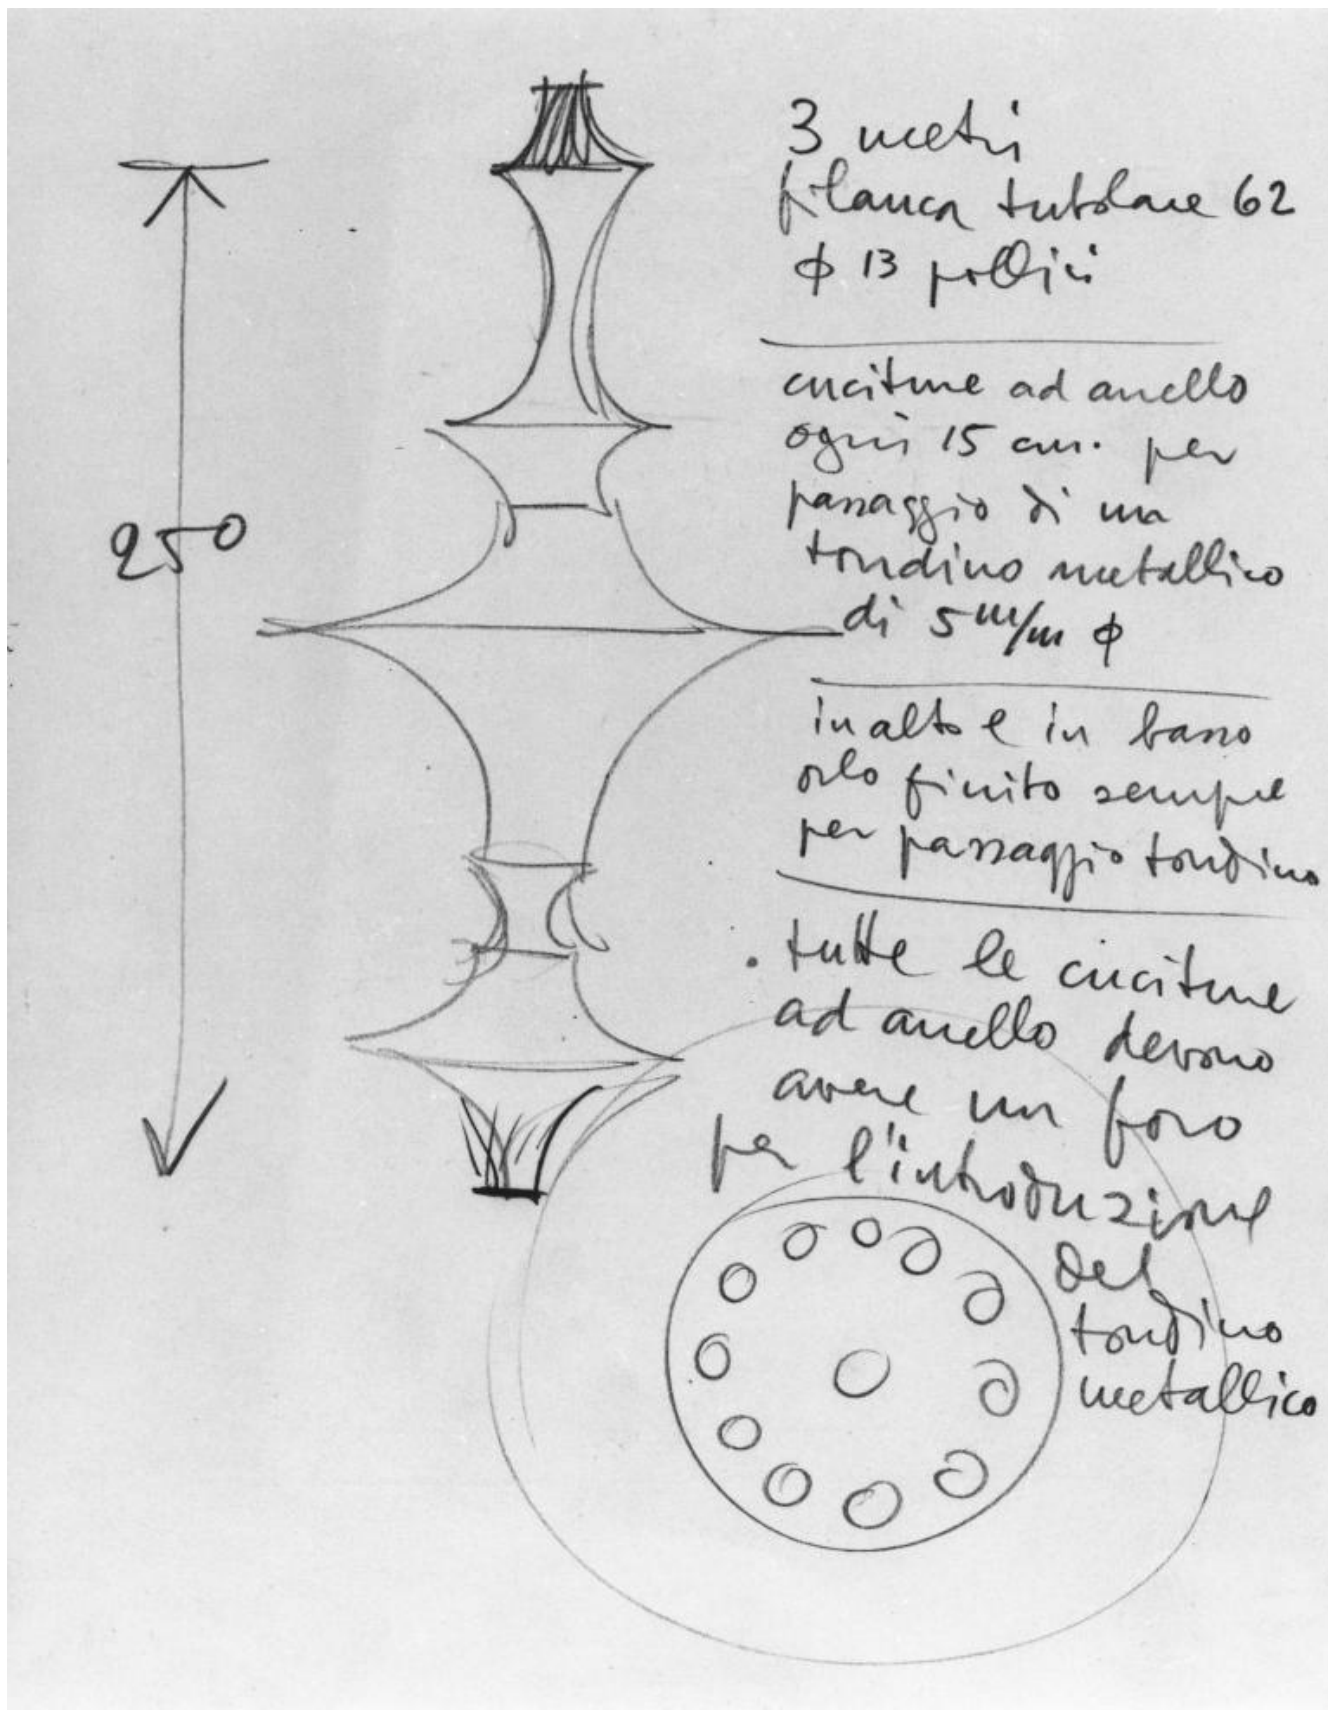 3 metri
filanca tubolare 62
φ 13 pollici
cuciture ad anello
ogni 15 cm. per
passaggio di un
tondino metallico
di 5 m/m φ
250
in alto e in basso
orlo finito sempre
per passaggio tondino
. tutte le cuciture
ad anello devono
avere un foro
per l'introduzione
del
tondino
metallico